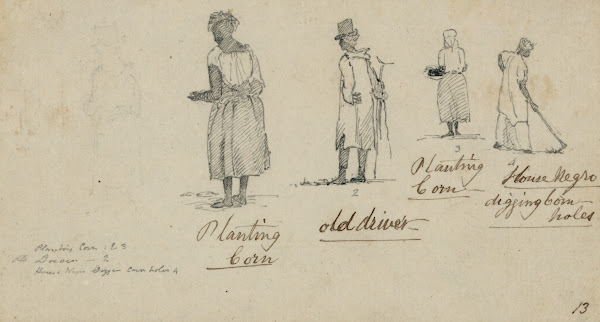 Planting
Corn
2
old driver
3
Planting
Corn
4
House Negro
digging Corn
holes
Planting Corn : & 3
Driver — 2
House Digger Corn holes 4
13